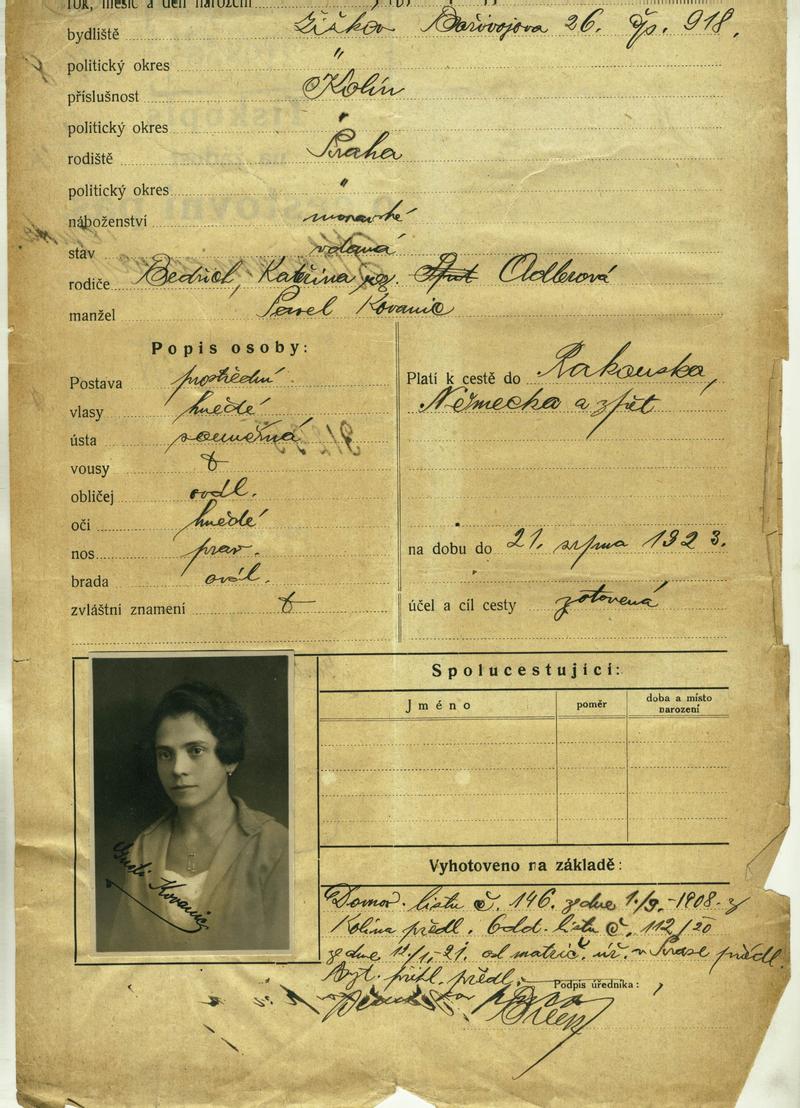 rok, měsíc a den narození
bydliště Žižkov Bořivojova 26. čp. 918.
politický okres "
příslušnost Kolín
politický okres "
rodiště Praha
politický okres "
náboženství moravské
stav vdaná
rodiče Bedřich, Kateřina roz. Adlerová
manžel Pavel Kovanic
Popis osoby:
Postava prostřední
vlasy hnědé
ústa souměrná
vousy
obličej ovál.
oči hnědé
nos prav.
brada ovál.
zvláštní znamení
Platí k cestě do Rakouska,
Německa a zpět
na dobu do 21. srpna 1923.
účel a cíl cesty zotavená
Spolucestující:
Jméno poměr doba a místo narození
Kovanic
Vyhotoveno na základě:
Domov. listu č. 146. ze dne 1./9.-1908. z
Kolína předl. Odd. listu č. 112/20
ze dne 12/1.-21. od matrič. úř. v Praze předl.
přihl. předl.
Podpis úředníka: